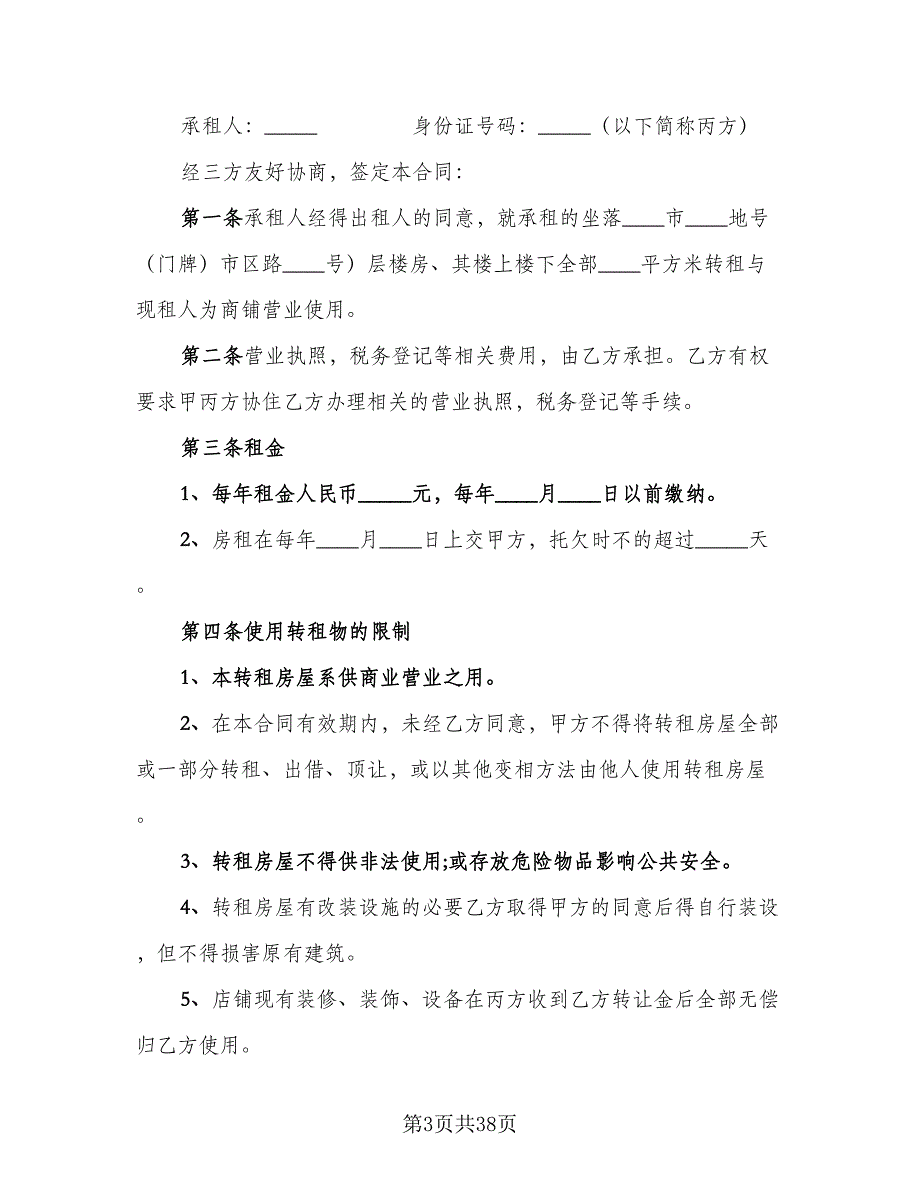 承租人：_____ 身份证号码：_____（以下简称丙方）
经三方友好协商，签定本合同：
第一条承租人经得出租人的同意，就承租的坐落____市____地号
（门牌）市区路____号）层楼房、其楼上楼下全部____平方米转租与
现租人为商铺营业使用。
第二条营业执照，税务登记等相关费用，由乙方承担。乙方有权
要求甲丙方协住乙方办理相关的营业执照，税务登记等手续。
第三条租金
1、每年租金人民币_____元，每年____月____日以前缴纳。
2、房租在每年____月____日上交甲方，托欠时不的超过_____天
。
第四条使用转租物的限制
1、本转租房屋系供商业营业之用。
2、在本合同有效期内，未经乙方同意，甲方不得将转租房屋全部
或一部分转租、出借、顶让，或以其他变相方法由他人使用转租房屋
。
3、转租房屋不得供非法使用;或存放危险物品影响公共安全。
4、转租房屋有改装设施的必要乙方取得甲方的同意后得自行装设
，但不得损害原有建筑。
5、店铺现有装修、装饰、设备在丙方收到乙方转让金后全部无偿
归乙方使用。
第3页共38页